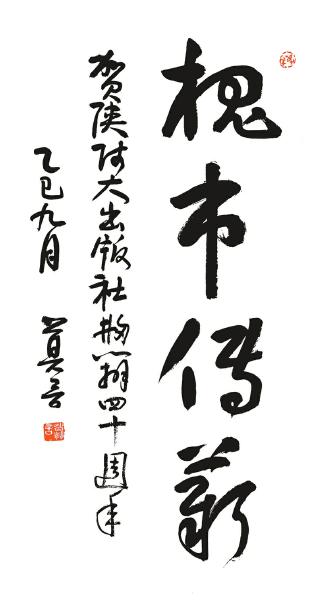 槐市传薪
贺陕师大出版社创办四十周年
乙巳九月 莫言